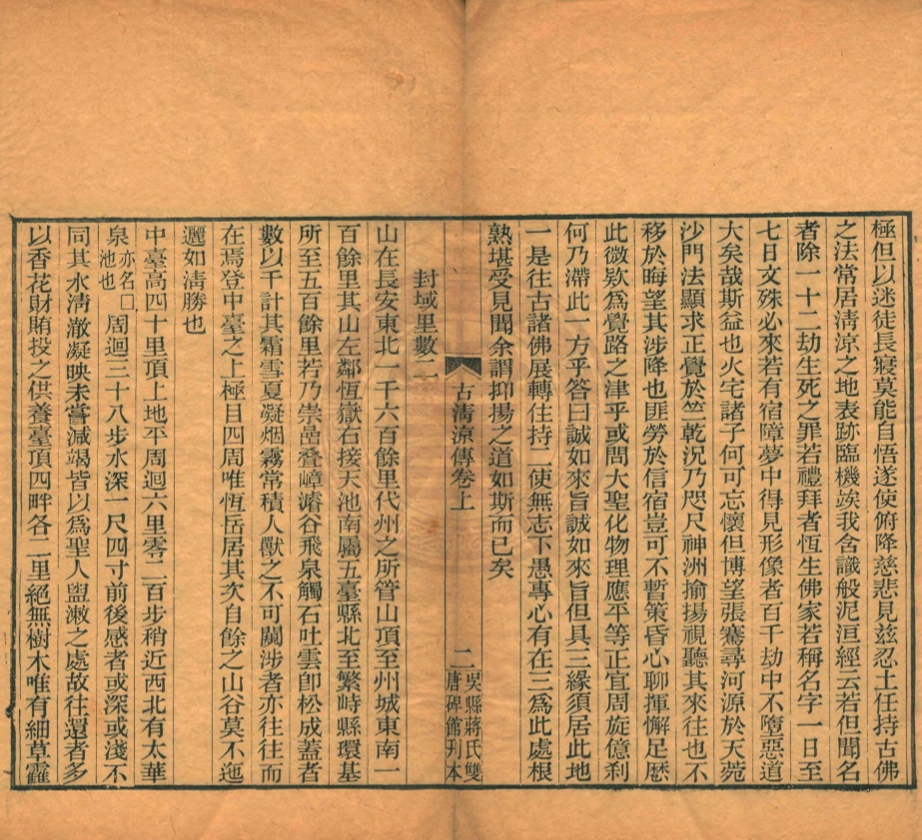 極但以迷徒長寢莫能自悟遂使俯降慈悲見玆忍土任持古佛
之法常居淸涼之地表跡臨機竢我含識般泥洹經云若但聞名
者除一十二劫生死之罪若禮拜者恆生佛家若稱名字一日至
七日文殊必來若有宿障夢中得見形像者百千劫中不墮惡道
大矣哉斯益也火宅諸子何可忘懷但博望張騫尋河源於天苑
沙門法顯求正覺於竺乾況乃咫尺神洲揄揚視聽其來往也不
移於晦望其涉降也匪勞於信宿豈可不暫策昏心聊揮懈足歷
此微欵爲覺路之津乎或問大聖化物理應平等正宜周旋億刹
何乃滯此一方乎答曰誠如來旨誠如來旨但具三緣須居此地
一是往古諸佛展轉住持二使無志下愚專心有在三爲此處根
熟堪受見聞余謂抑揚之道如斯而已矣
古淸涼傳卷上
二
吳縣蔣氏雙
唐碑館刊本
封域里數二
山在長安東北一千六百餘里代州之所管山頂至州城東南一
百餘里其山左鄰恆嶽右接天池南屬五臺縣北至繁峙縣環基
所至五百餘里若乃崇嵒疊嶂濬谷飛泉觸石吐雲卽松成蓋者
數以千計其霜雪夏凝烟霧常積人獸之不可闚涉者亦往往而
在焉登中臺之上極目四周唯恆岳居其次自餘之山谷莫不迤
邐如淸勝也
中臺高四十里頂上地平周迴六里零二百步稍近西北有太華
泉亦名□池也周迴三十八步水深一尺四寸前後感者或深或淺不
同其水淸澈凝映未嘗減竭皆以爲聖人盥漱之處故往還者多
以香花財賄投之供養臺頂四畔各二里絕無樹木唯有細草靃